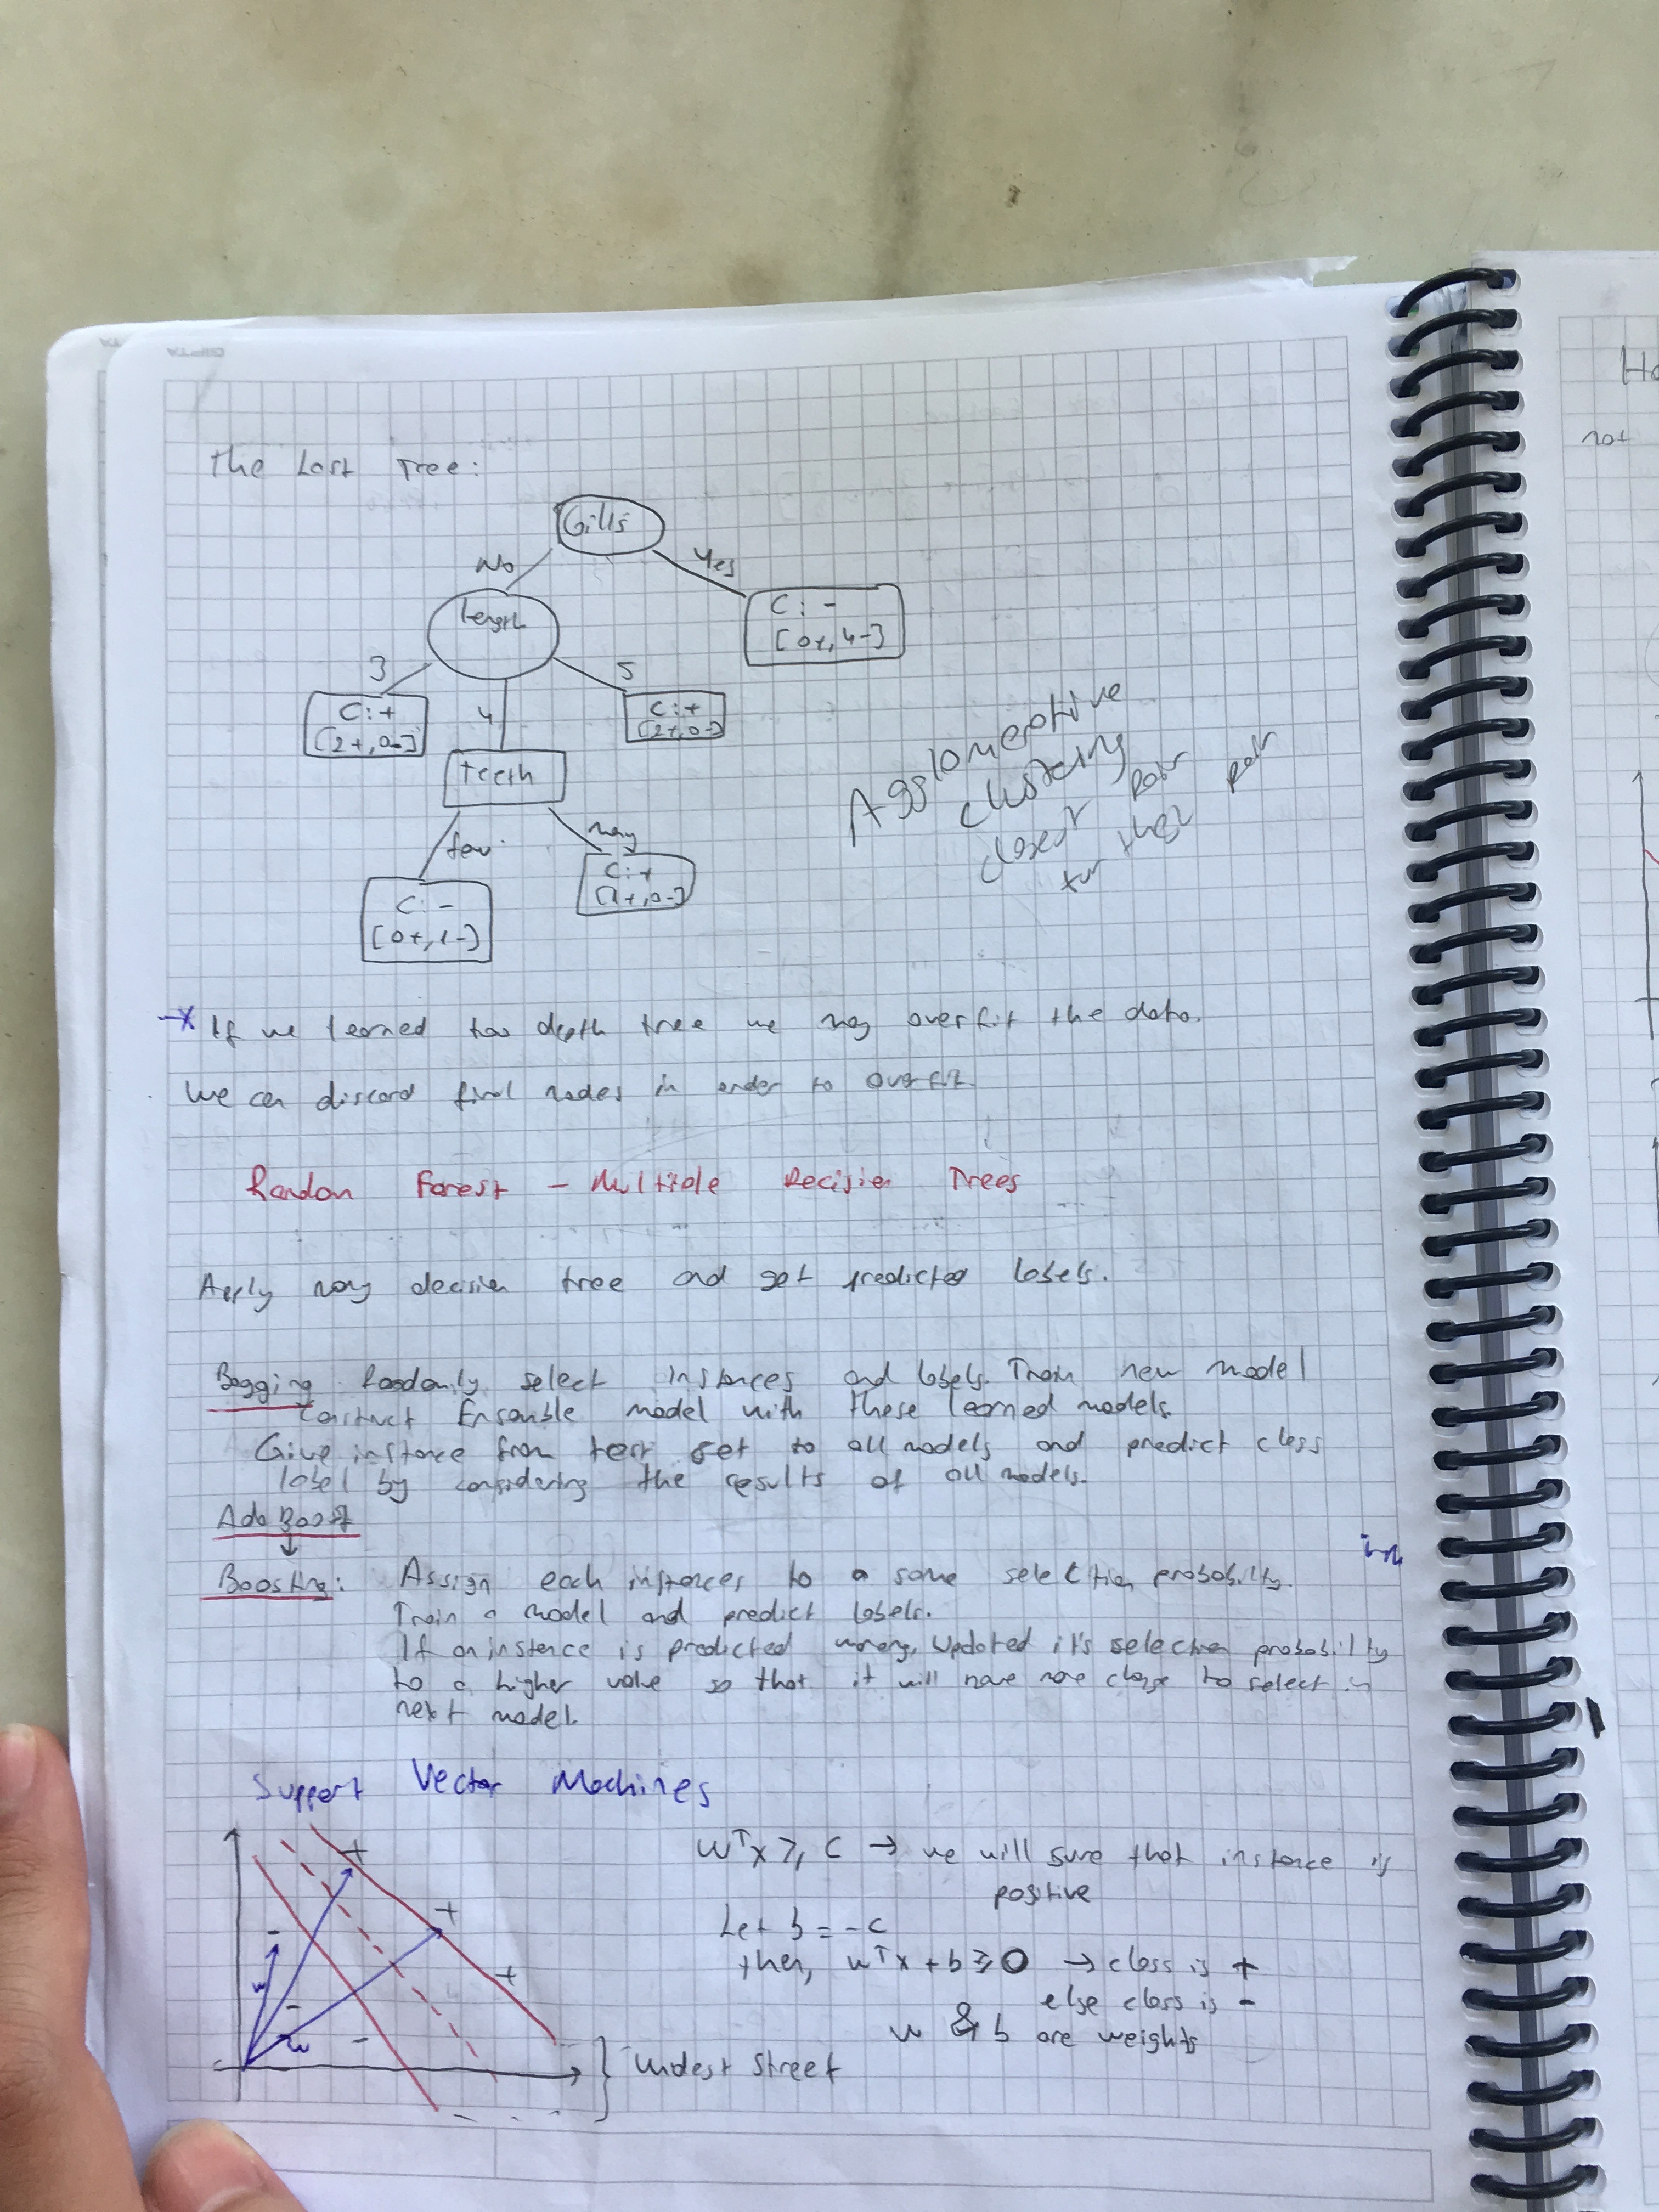 The Last Tree:
Gills
No
Yes
Length
C: -
[0+, 4-]
3
4
5
C: +
[2+, 0-]
C: +
[2+, 0-]
Teeth
few
many
C: -
[0+, 1-]
C: +
[1+, 0-]
Agglomerative
clustering
closest pair
then pair
If we learned too depth tree we may overfit the data.
We can discard final nodes in order to overfit.
Random Forest - Multiple Decision Trees
Apply many decision tree and get predicted labels.
Bagging Randomly select instances and labels. Train new model
Construct Ensemble model with these learned models.
Give instance from test set to all models and predict class
label by considering the results of all models.
Ada Boost
↓
Boosting: Assign each instances to a same selection probability.
Train a model and predict labels.
If an instance is predicted wrong, updated it's selection probability
to a higher value so that it will have more change to select in
next model.
Support Vector Machines
wᵀx ≥ c → we will sure that instance is
positive
Let b = -c
then, wᵀx + b ≥ 0 → class is +
else class is -
w & b are weights
+
+
+
-
-
-
w
w
} Widest Street
Ha
not